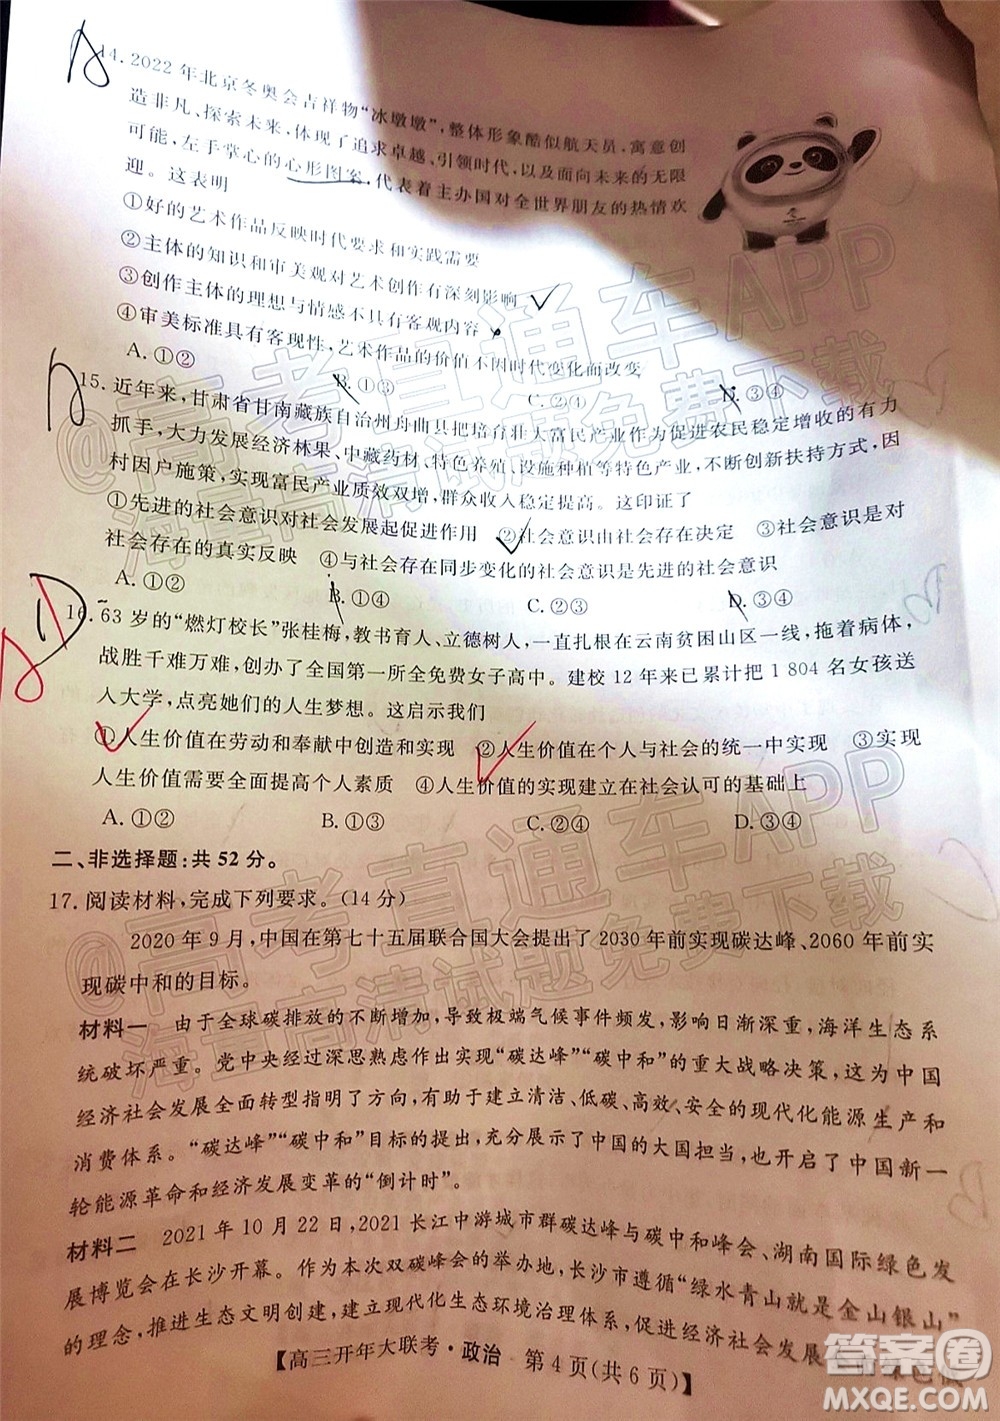 14. 2022年北京冬奥会吉祥物“冰墩墩”，整体形象酷似航天员，寓意创
造非凡、探索未来，体现了追求卓越、引领时代，以及面向未来的无限
可能，左手掌心的心形图案，代表着主办国对全世界朋友的热情欢
迎。这表明
①好的艺术作品反映时代要求和实践需要
②主体的知识和审美观对艺术创作有深刻影响
③创作主体的理想与情感不具有客观内容
④审美标准具有客观性，艺术作品的价值不因时代变化而改变
A. ①② B. ①③ C. ②④ D. ③④
15. 近年来，甘肃省甘南藏族自治州舟曲县把培育壮大富民产业作为促进农民稳定增收的有力
抓手，大力发展经济林果、中藏药材、特色养殖、设施种植等特色产业，不断创新扶持方式，因
村因户施策，实现富民产业质效双增，群众收入稳定提高。这印证了
①先进的社会意识对社会发展起促进作用 ②社会意识由社会存在决定 ③社会意识是对
社会存在的真实反映 ④与社会存在同步变化的社会意识是先进的社会意识
A. ①② B. ①④ C. ②③ D. ③④
16. 63岁的“燃灯校长”张桂梅，教书育人、立德树人，一直扎根在云南贫困山区一线，拖着病体，
战胜千难万难，创办了全国第一所全免费女子高中。建校12年来已累计把1 804名女孩送
人大学，点亮她们的人生梦想。这启示我们
①人生价值在劳动和奉献中创造和实现 ②人生价值在个人与社会的统一中实现 ③实现
人生价值需要提高个人素质 ④人生价值的实现建立在社会认可的基础上
A. ①② B. ①③ C. ②④ D. ③④
二、非选择题：共52分。
17. 阅读材料，完成下列要求。(14分)
2020年9月，中国在第七十五届联合国大会提出了2030年前实现碳达峰、2060年前实
现碳中和的目标。
材料一 由于全球碳排放的不断增加，导致极端气候事件频发，影响日渐深重，海洋生态系
统破坏严重。党中央经过深思熟虑作出实现“碳达峰”“碳中和”的重大战略决策，这为中国
经济社会发展全面转型指明了方向，有助于建立清洁、低碳、高效、安全的现代化能源生产和
消费体系。“碳达峰”“碳中和”目标的提出，充分展示了中国的大国担当，也开启了中国新一
轮能源革命和经济发展变革的“倒计时”。
材料二 2021年10月22日，2021长江中游城市群碳达峰与碳中和峰会、湖南国际绿色发
展博览会在长沙开幕。作为本次双碳峰会的举办地，长沙市遵循“绿水青山就是金山银山”
的理念，推进生态文明创建，建立现代化生态环境治理体系，加快绿色发展
【高三开年大联考·政治 第4页(共6页)】
@高考直通车APP
海量高清试题免费下载
@高考直通车APP
海量高清试题免费下载
答案圈
MXQE.COM